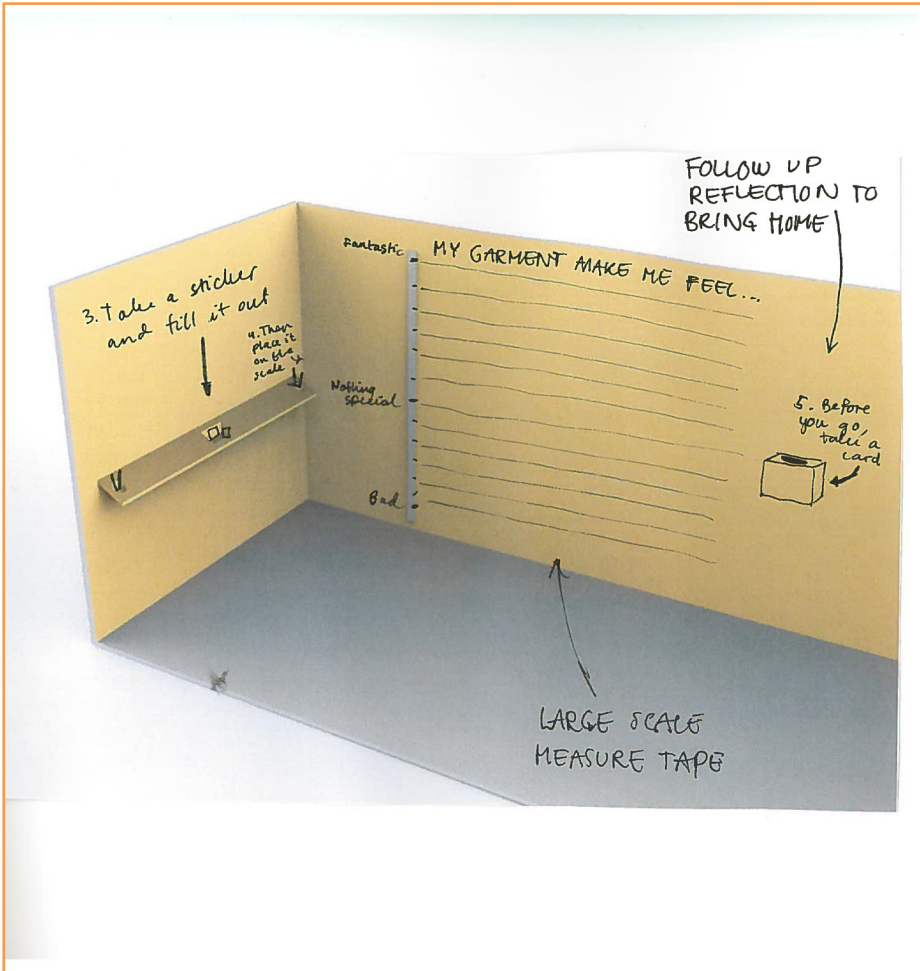 FOLLOW UP
REFLECTION TO
BRING HOME
3. Take a sticker
and fill it out
4. Then
place it
on the
scale
Fantastic
MY GARMENT MAKE ME FEEL...
Nothing
special
Bad
5. Before
you go,
take a
card
LARGE SCALE
MEASURE TAPE